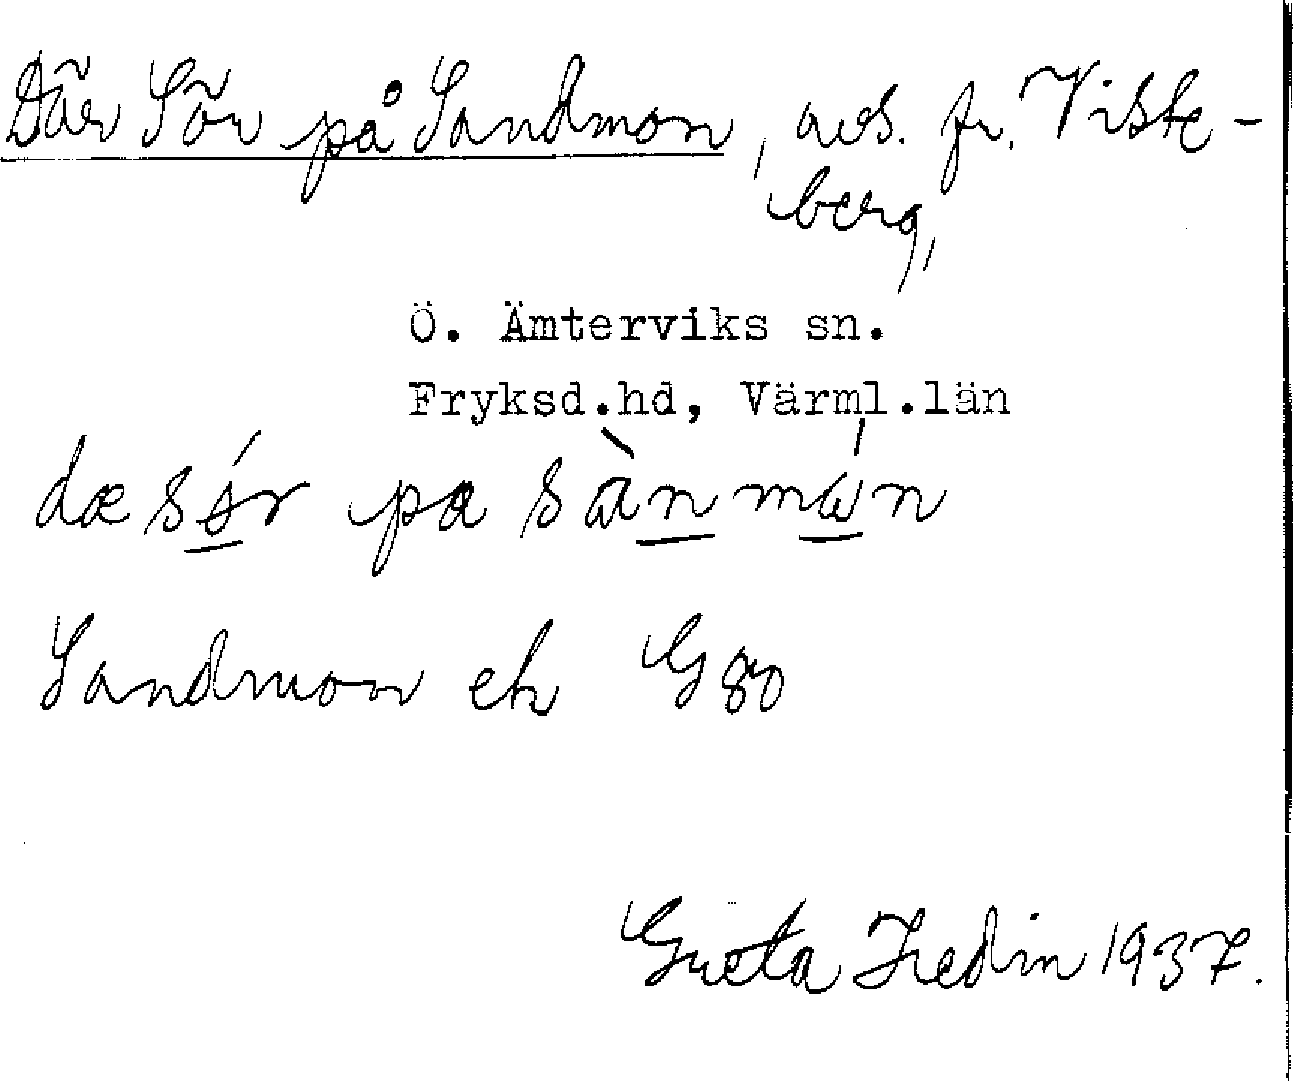 Där Sör på Sandmon, avs. fr. Viste-
berg,
Ö. Ämterviks sn.
Fryksd.hd, Värml.län
dæ sǿr pa sànmón
Sandmon ek G 80
Greta Hedin 1937.